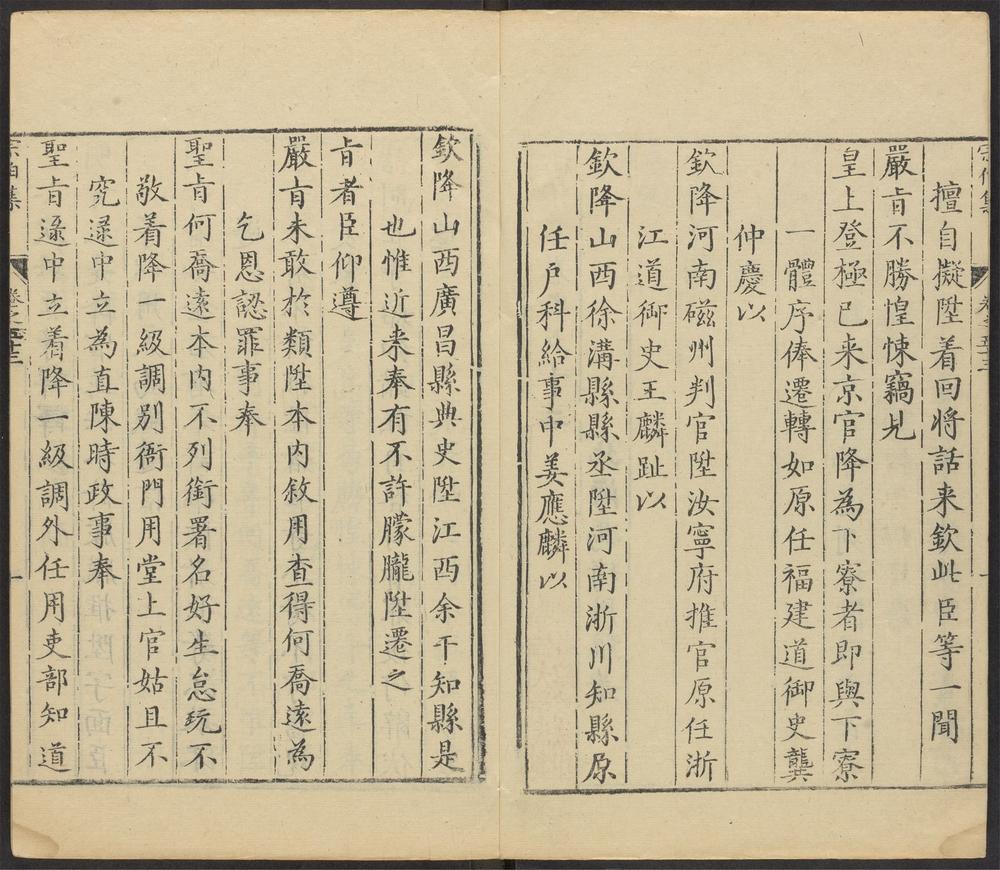 擅自擬陞着回將話来欽此臣等一聞
嚴旨不勝惶悚竊見
皇上登極已来京官降為下寮者即與下寮
一體序俸遷轉如原任福建道御史龔
仲慶以
欽降河南磁州判官陞汝寧府推官原任浙
江道御史王麟趾以
欽降山西徐溝縣縣丞陞河南浙川知縣原
任戶科給事中姜應麟以
欽降山西廣昌縣典史陞江西余干知縣是
也惟近来奉有不許朦朧陞遷之
旨者臣仰遵
嚴旨未敢於類陞本内敘用查得何喬遠為
乞恩認罪事奉
聖旨何喬遠本内不列銜署名好生怠玩不
敬着降一級調别衙門用堂上官姑且不
究逯中立為直陳時政事奉
聖旨逯中立着降一級調外任用吏部知道
一